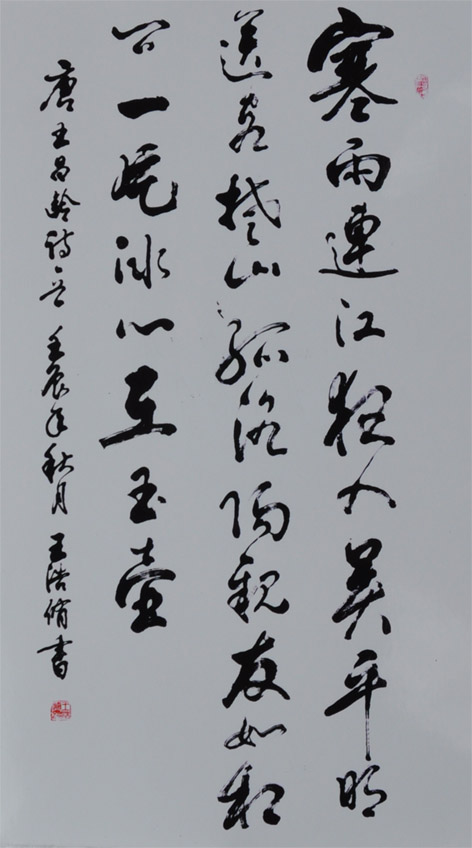 寒雨連江夜入吴平明
送客楚山孤洛陽親友如相
问一片冰心在玉壺
唐王昌齡詩一首 壬辰年秋月 王浩脩書